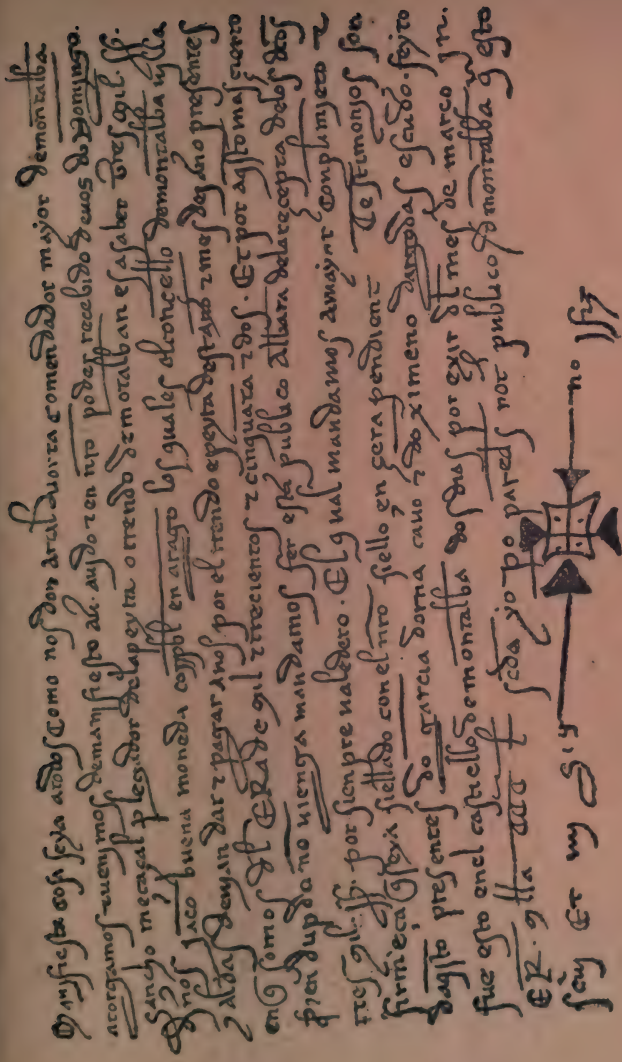 Manifiesta cosa seya atodos Como nos don arcal duorta comendador mayor demontalba
atorgamos tuenymos demanifiesto auer auydo z en nro poder recebido deuos do domingo
sancho metacal plegador dela peyta o trendo demotalban es asaber tres mil ss.
dnos jaco buena moneda corrybl en arago los quales el concello demontalba z las
aldeas deuyan dar z pagar Anos por el trendo e peyta dest año z mes de jano presentes
en q somos dl ERA de mil z trecientos z cinquata z dos. Et por aqsto mas cierto
z en dupda no uienga mandamos fer est publico Albara dela recepta delos dtos
tres mil ss. por sienpre ualedero. El qual mandamos amayor conplimieto z
firmeça q seya siellado con el nro siello en cera pendient. Testimonios son
daqsto presentes do garcia dorna cauo z do ximeno dargodas escudo. feyto
fue esto enel castiello demontalba dos dias por exir dl mes de março jn.
ER. Mª CCC Lª Scda yo po pareds not publico d montalba q esto
scriuy Et my Sig no ffiz